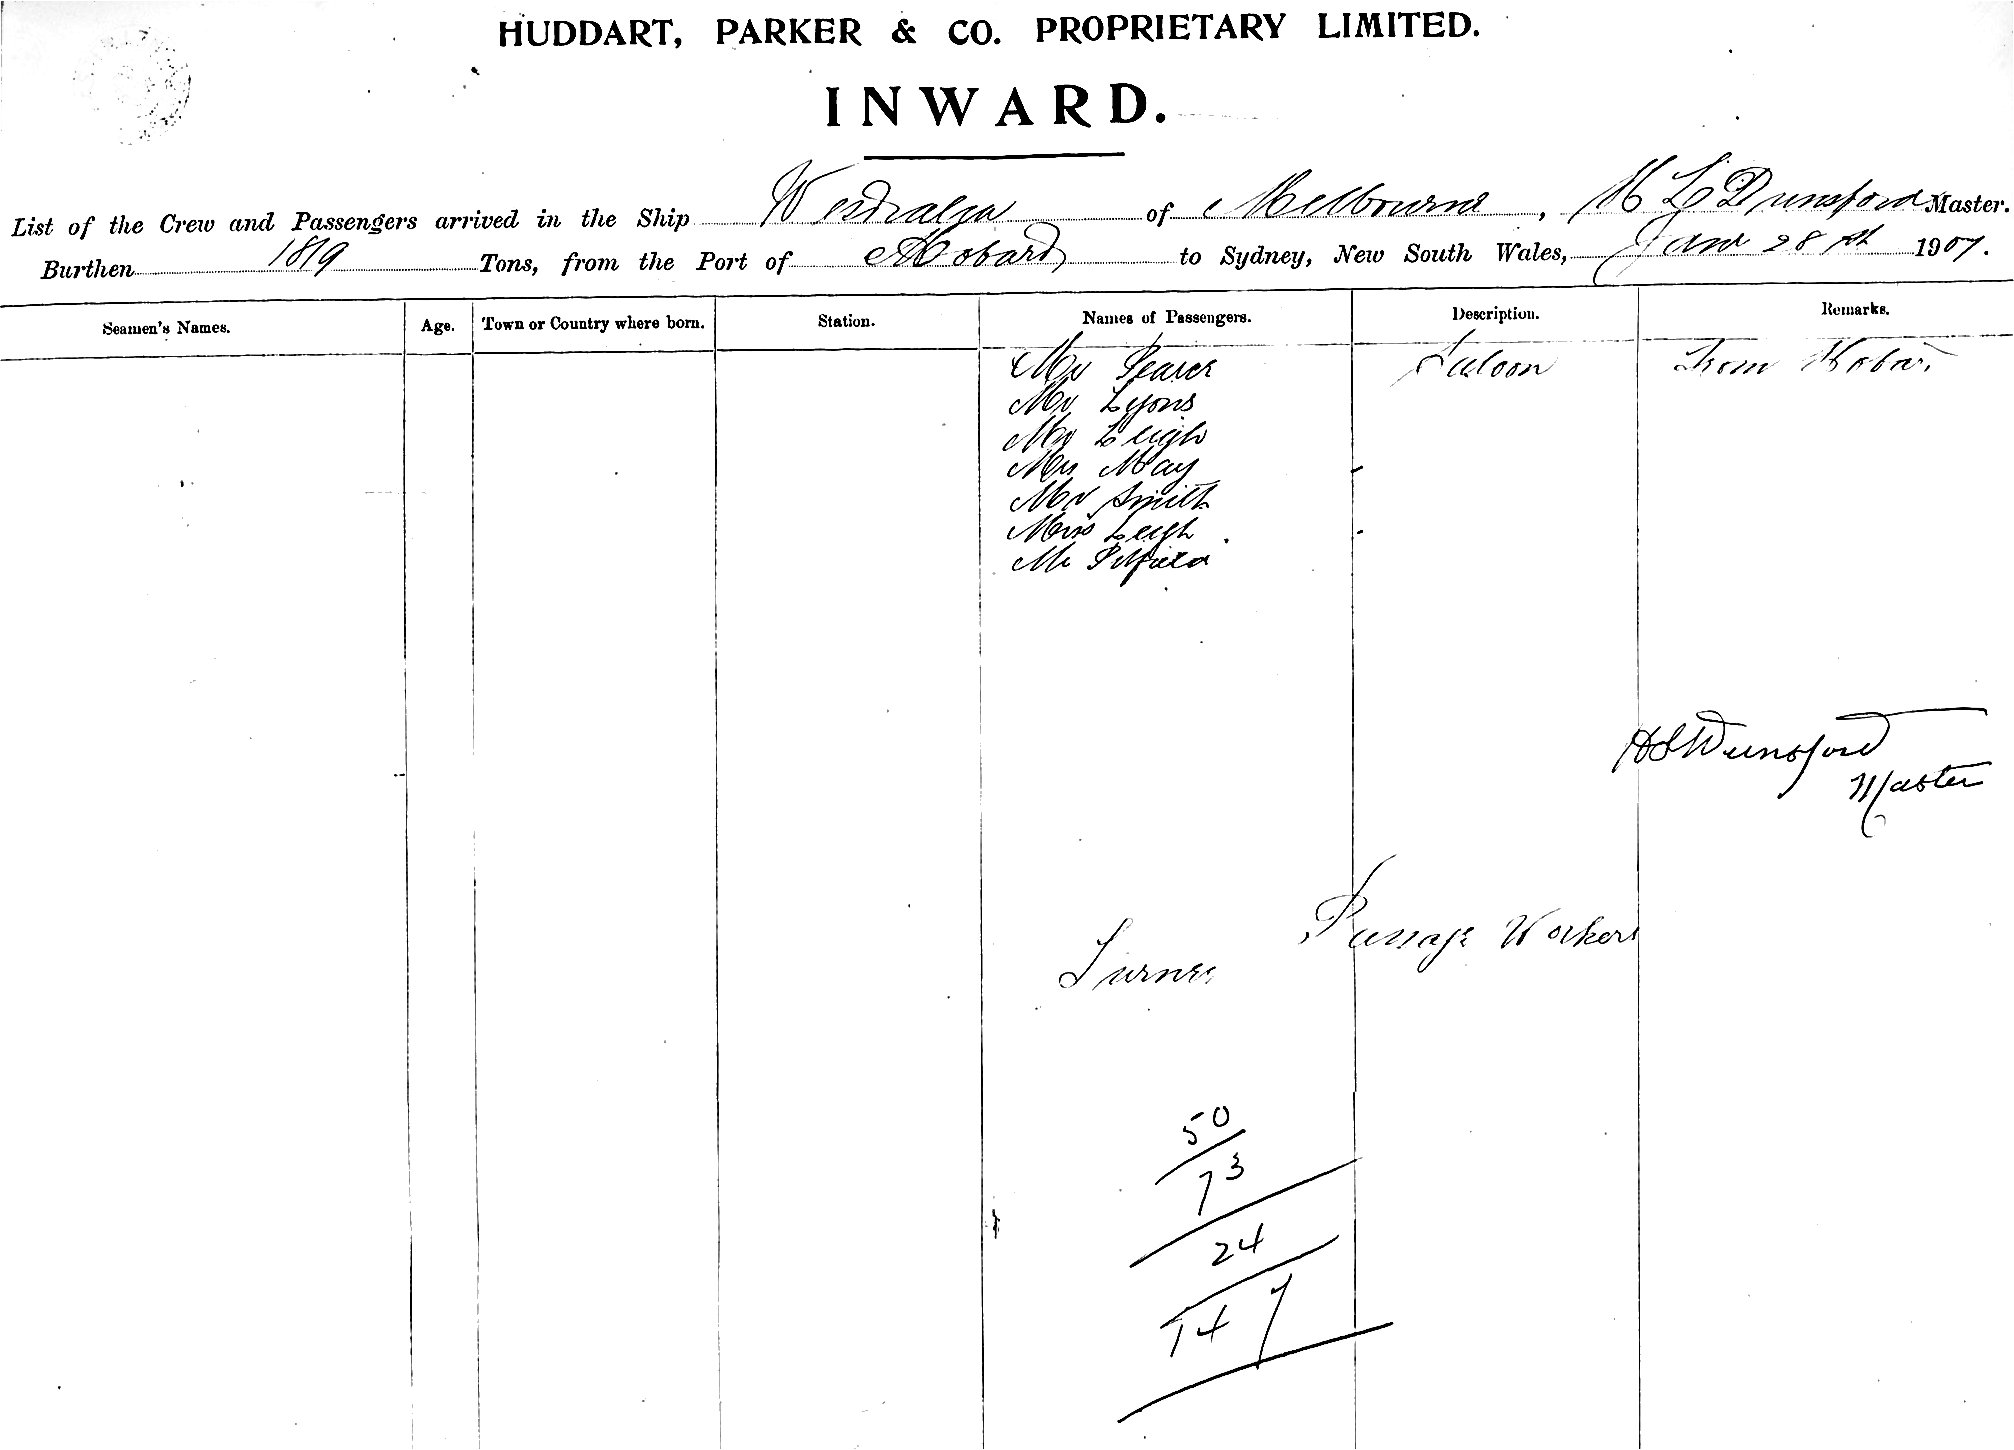 HUDDART, PARKER & CO. PROPRIETARY LIMITED.
INWARD.
List of the Crew and Passengers arrived in the Ship Westralia of Melbourne, H L Dunsford Master.
Burthen 1819 Tons, from the Port of Hobart to Sydney, New South Wales, Jany 28th 1907.
Seamen's Names. Age. Town or Country where born. Station. Names of Passengers. Description. Remarks.
Mr Pearce Saloon From Hobar
Mr Lyons
Mr Leigh
Mrs May
Mr Smith
Miss Leigh
Mr
Dunsford
Master
Passage Workers
Turner
50
73
24
147